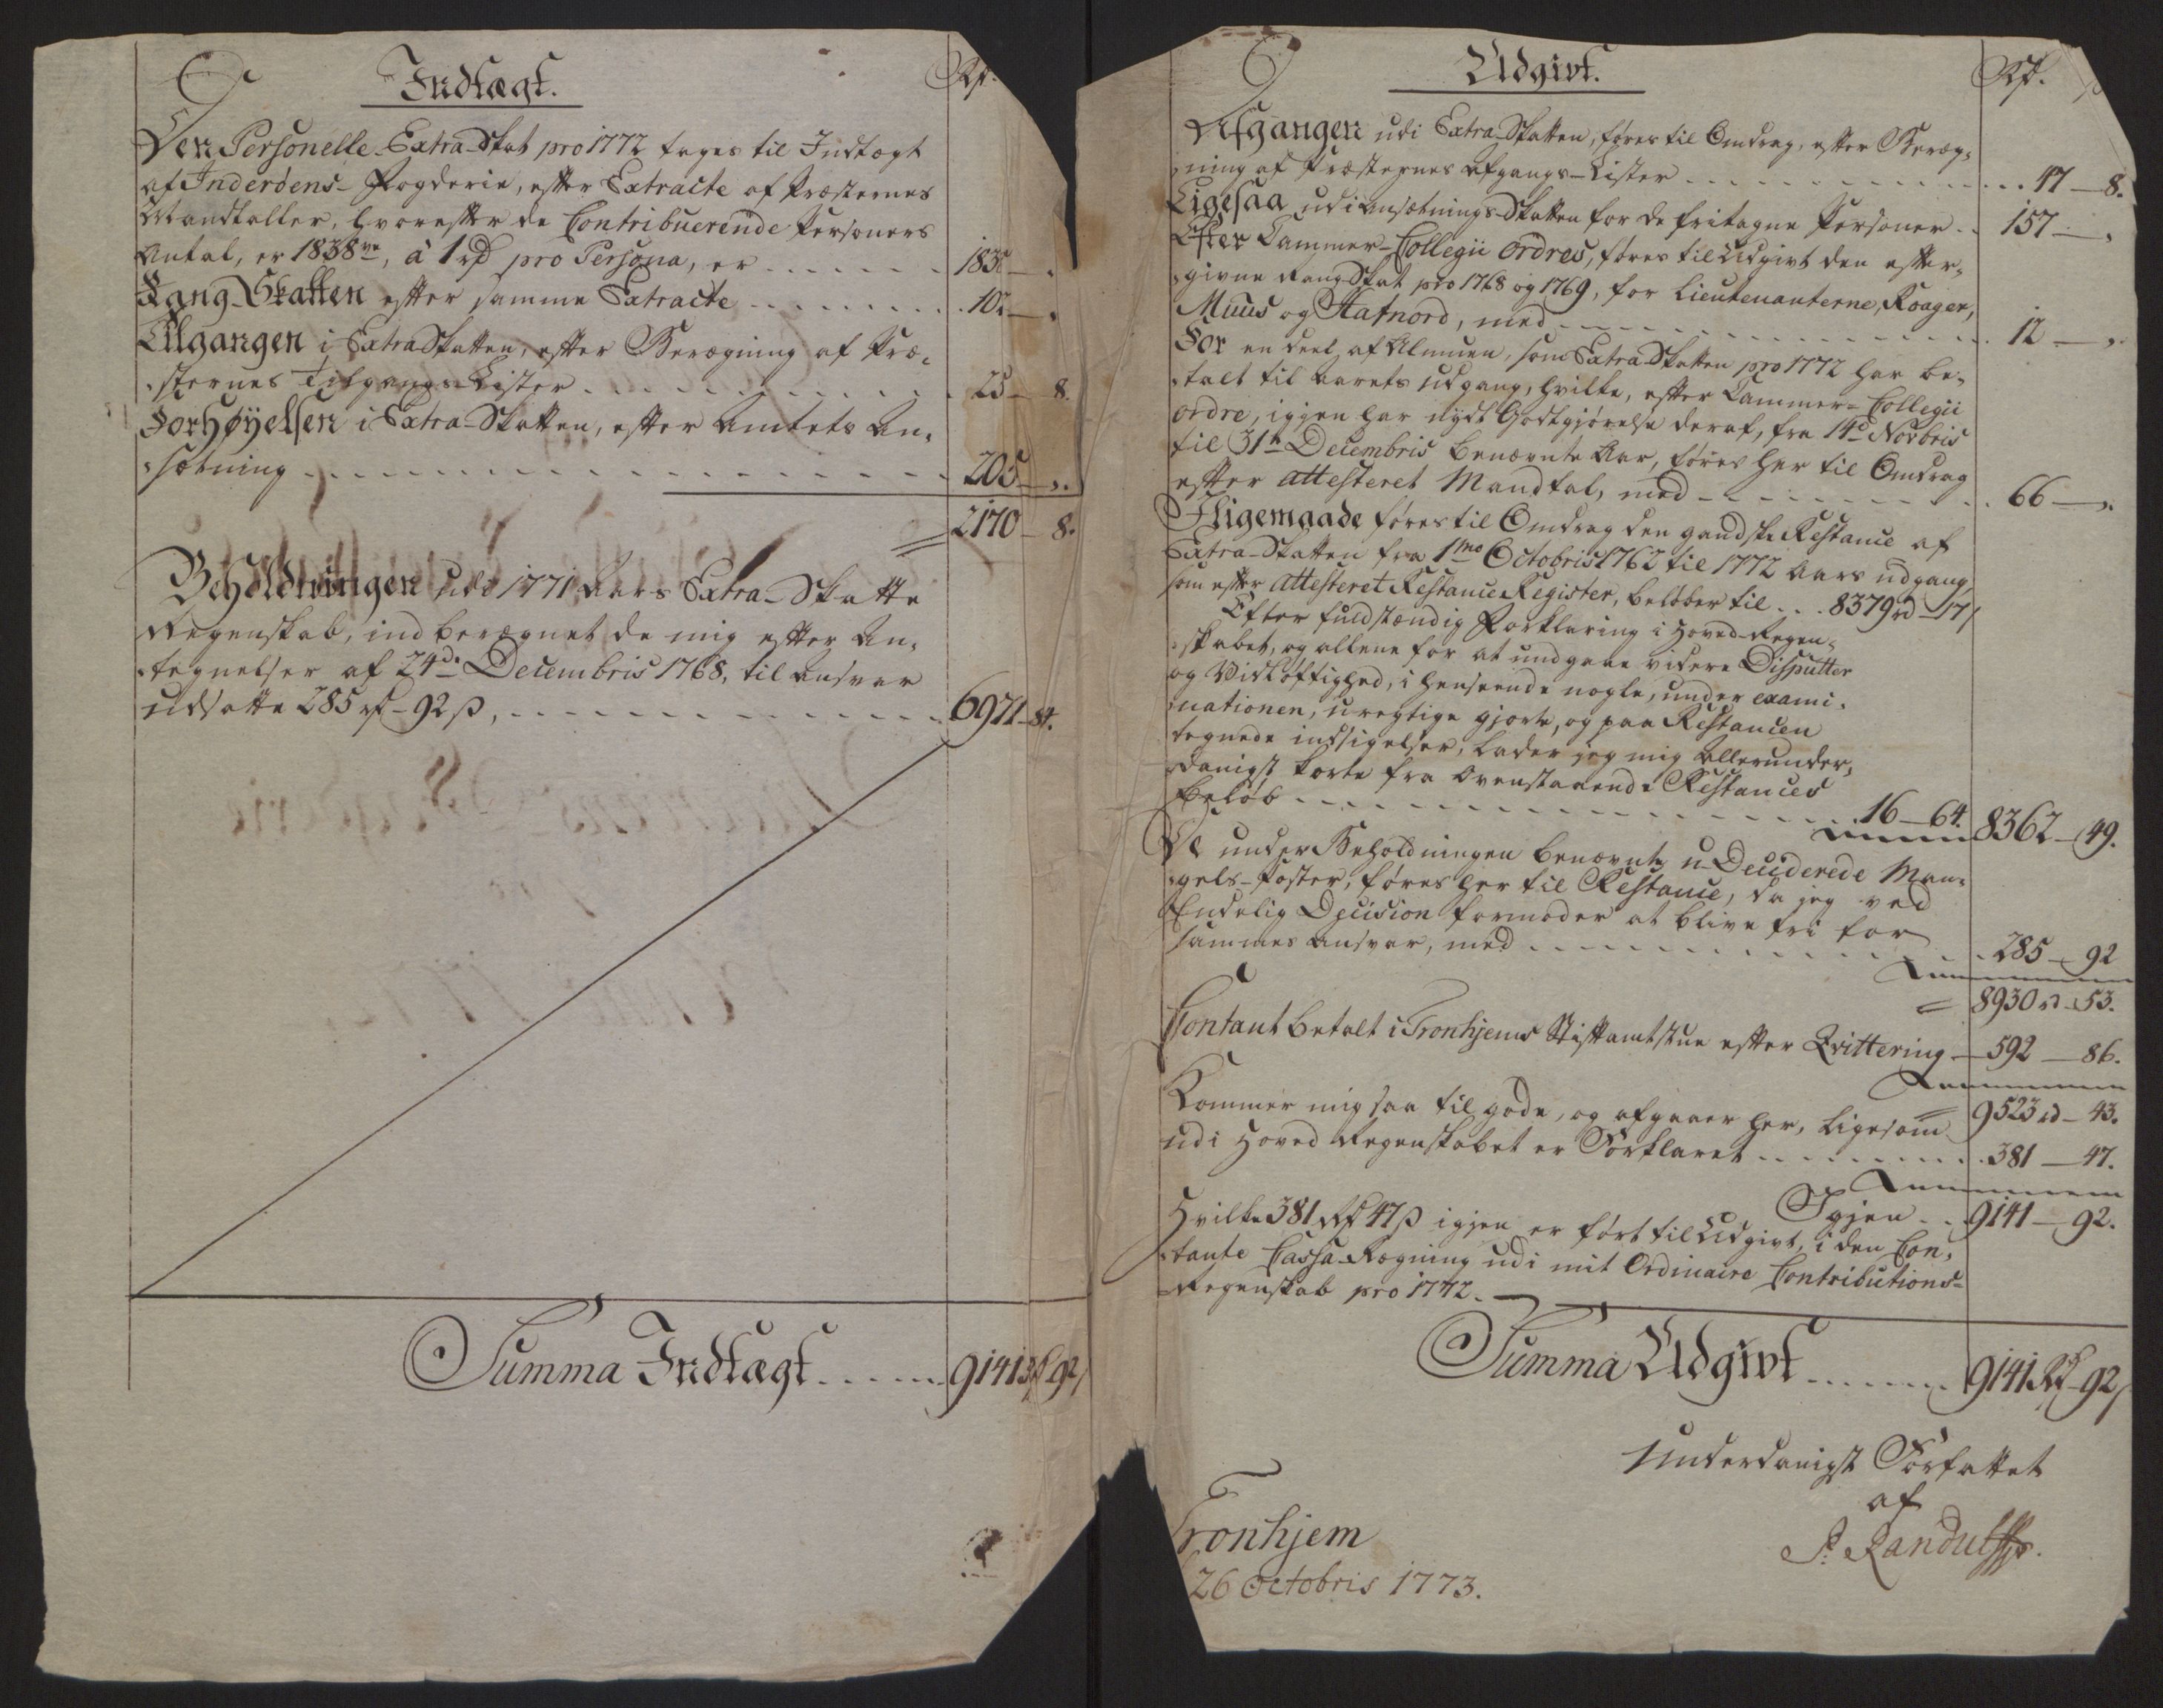 Indtægt.
Rd.
Den Personelle Extra-Skat pro 1772 tages til Indtægt
af Inderøens-Fogderie, efter Extracte af Præsternes
Mandtaller, hvorefter de Contribuerende Personers
Antal, er 1838ve, à 1 rd pro Persona, er - - - - - - 1838 - „
Rang-Skatten efter samme Extracte - - - - - - 102 - „
Tilgangen i Extra Skatten, efter Beregning af Præ-
sternes Tilgangs-Lister - - - - - - 25 - 8.
Forhøyelsen i Extra-Skatten, efter Amtets An-
sætning - - - - - - 205 - „.
= 2170 - 8.
Beholdningen udi 1771 Aars Extra-Skatte
Regenskab, indberegnet de mig efter An-
tegnelser af 24de Decembris 1768, til ansvar
udsatte 285 rd - 92 ß, - - - - - - 6971 - 84.
Summa Indtægt - - - - - - 9141 Rd 92 ß
Udgivt.
Rd.
Afgangen udi Extra-Skatten, føres til Omdrag, efter Bereg-
ning af Præsternes Afgangs-Lister - - - - - - 47 - 8.
Ligesaa udi Ansætnings-Skatten for de fritagne Personer - - 157 - „
Efter Cammer-Collegii Ordres, føres til Udgivt den efter-
givne Rang Skat pro 1768 og 1769, for Lieutenanterne, Roager,
Muus og Hafnord, med - - - - - - 12 - „.
For en deel af Almuen, som Extra-Skatten pro 1772 har be-
talt til Aarets Udgang, hvilke, efter Cammer-Collegii
Ordre, igjen har nydt Godtgjørelse deraf, fra 14de Novbris
til 31te Decembris benævnte Aar, føres her til Omdrag
efter attesteret Mandtal, med - - - - - - 66 - „.
I Ligemaade føres til Omdrag den gandske Restance af
Extra-Skatten fra 1mo Octobris 1762 til 1772 Aars udgang,
som efter attesteret Restance Register, beløber til - - 8379 rd - 17 ß
Efter fuldstændig Forklaring i Hoved-Regen-
skabet, og allene for at undgaae videre Disputter
og Vidtløftighed, i henseende nogle, under exami-
nationen, urigtige gjorte, og paa Restancen
tegnede indsigelser, lader jeg mig allerunder-
danigst korte fra ovenstaaende Restances
Beløb - - - - - - 16 - 64. 8362 - 49.
De under Beholdningen benævnte u-Deciderede Man-
gels-Poster, føres her til Restance, da jeg ved
Endelig Decision formoder at blive fri for
sammes ansvar, med - - - - - - 285 - 92
= 8930 rd - 53.
Contant betalt i Tronhjems Stiftamtstue efter Qvittering - 592 - 86.
= 9523 rd - 43.
Kommer mig saa til gode, og afgaaer her, ligesom
udi Hoved Regenskabet er Forklaret - - - - - - 381 - 47.
Igjen - - 9141 - 92.
Hvilke 381 Rd 47 ß igjen er ført til Udgivt, i den Con-
tante Cassa-Regning udi mit Ordinaire Contributions-
Regenskab pro 1772.
Summa Udgivt - - - - - - 9141 Rd - 92 ß
Underdanigst Forfattet
af
P. Randulff
Tronhjem
26 Octobris 1773.